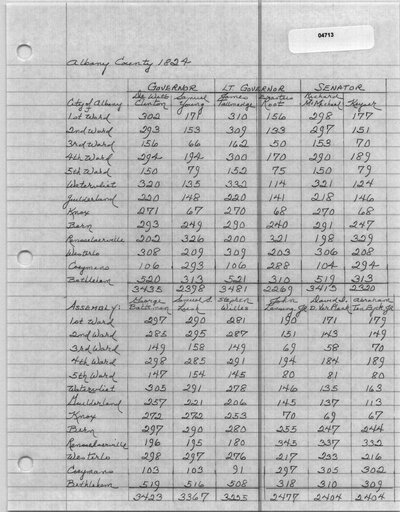 04713
Albany County 1824
GOVERNOR LT GOVERNOR SENATOR
De Witt Samuel James Erastus Richard
City of Albany Clinton Young Tallmadge Root McMichael Keyser
1st Ward 302 171 310 156 298 177
2nd Ward 293 153 309 133 297 151
3rd Ward 156 66 162 50 153 70
4th Ward 294 194 300 170 290 189
5th Ward 150 79 152 75 150 79
Watervliet 320 135 332 114 321 124
Guilderland 220 148 220 141 218 146
Knox 271 67 270 68 270 68
Bern 293 249 290 240 291 247
Rensselaerville 202 326 200 321 198 329
Westerlo 308 209 309 203 306 208
Coeymans 106 293 106 288 104 294
Bethlehem 520 313 521 310 519 313
3435 2398 3481 2269 3413 2320
ASSEMBLY: George Samuel S. Stephen John David S. Abraham
Batterman Lush Willes Lansing Jr. Ten Eyck Jr.
1st Ward 297 290 281 190 171 179
2nd Ward 285 295 287 151 143 149
3rd Ward 149 158 149 69 58 70
4th Ward 298 285 291 194 184 189
5th Ward 147 154 145 80 81 80
Watervliet 305 291 278 146 135 163
Guilderland 257 221 206 145 137 113
Knox 272 272 253 70 69 67
Bern 297 290 280 255 247 244
Rensselaerville 196 195 180 345 337 332
Westerlo 298 297 276 217 233 216
Coeymans 103 103 91 297 305 302
Bethlehem 519 516 508 318 310 309
3423 3367 3225 2477 2404 2404